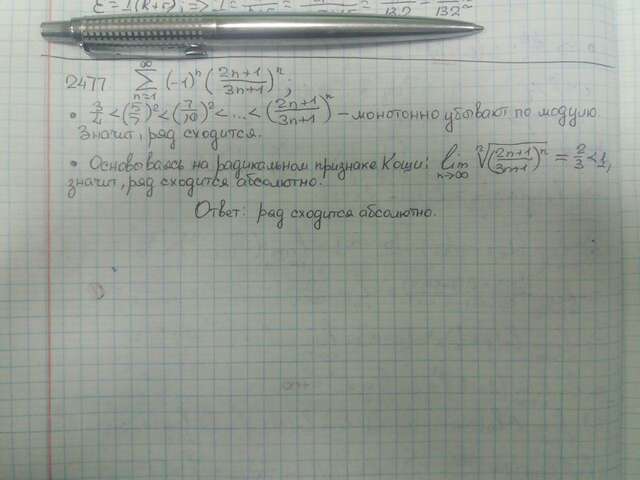 2477 ∑_{n=1}^{∞} (-1)^n (2n+1/3n+1)^n ;
• 3/4 < (5/7)^2 < (7/10)^2 < ... < (2n+1/3n+1)^n – монотонно убывают по модулю.
Значит, ряд сходится.
• Основоваясь на радикальном признаке Коши: lim_{n→∞} ⁿ√(2n+1/3n+1)^n = 2/3 < 1,
значит, ряд сходится абсолютно.
Ответ: ряд сходится абсолютно.